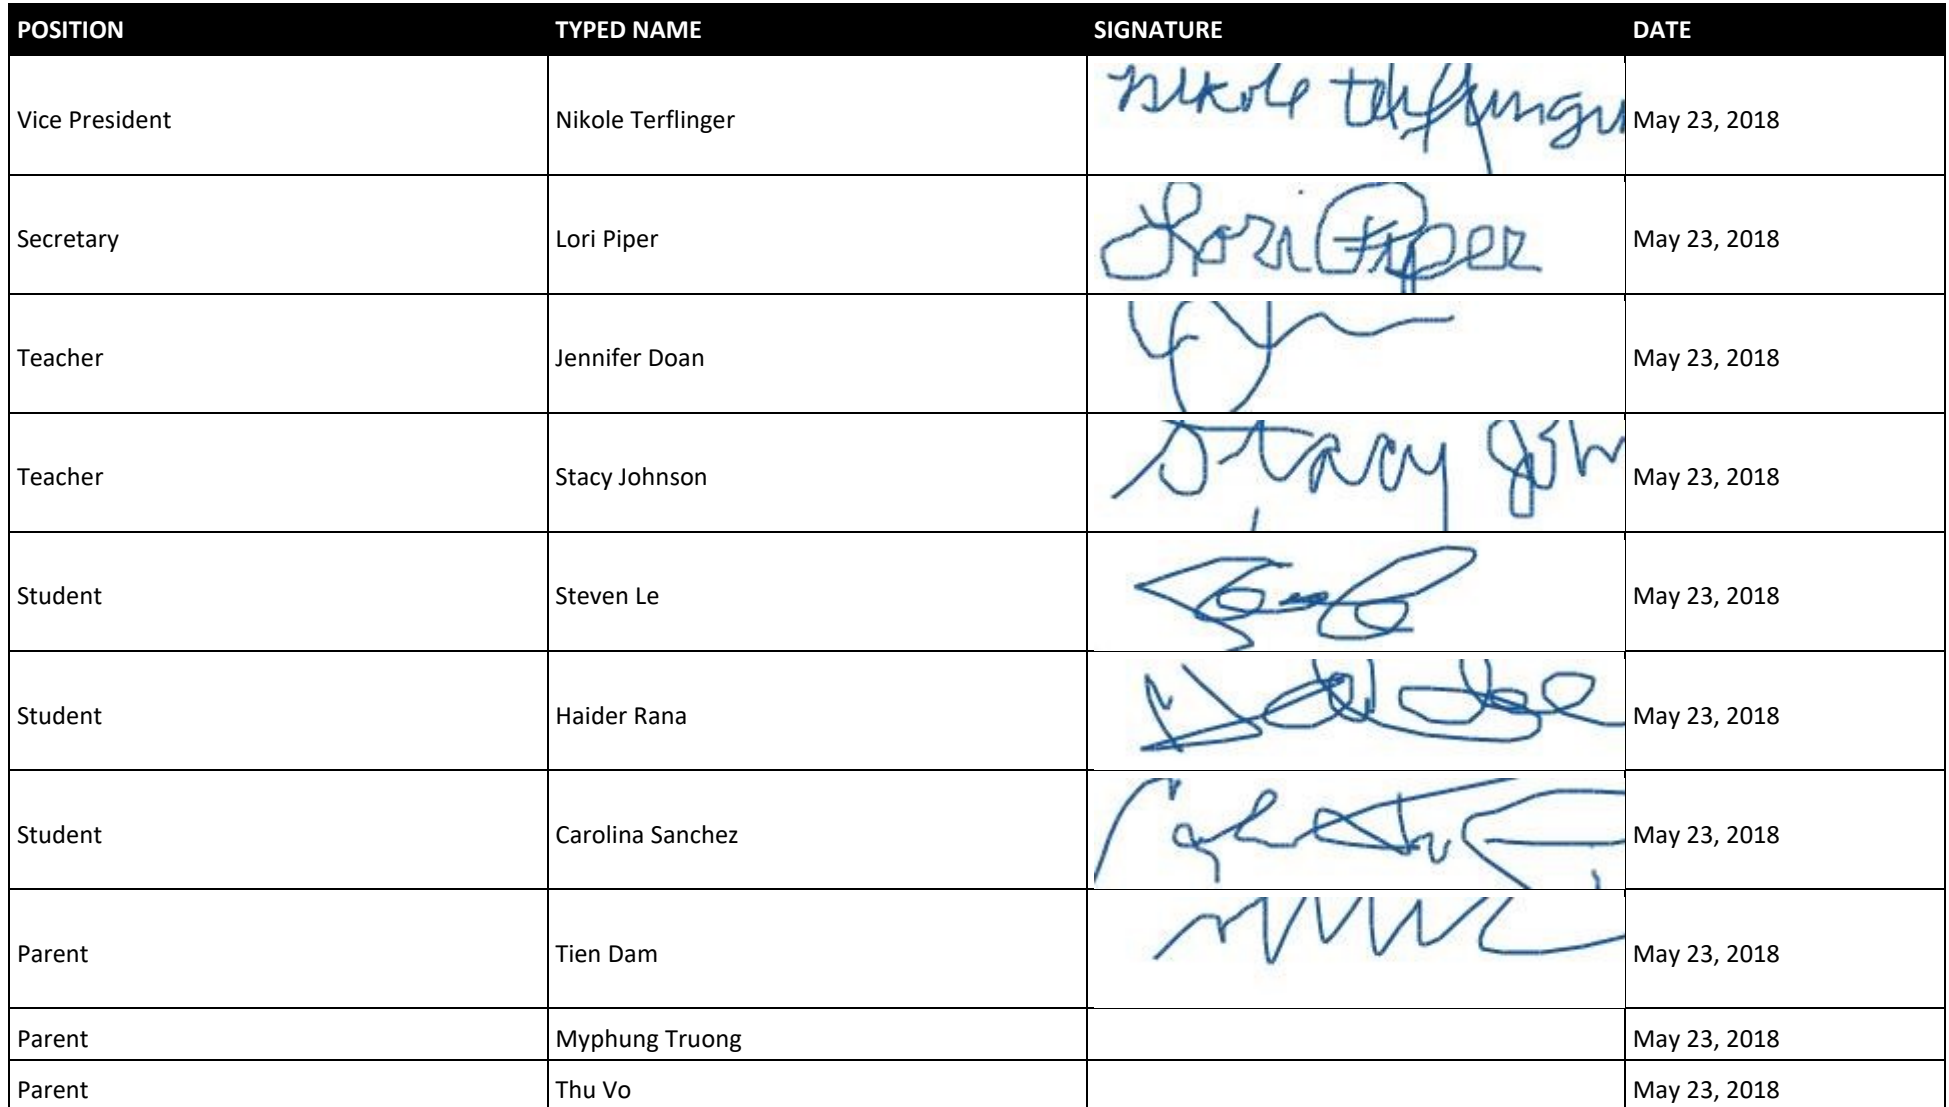 POSITION TYPED NAME SIGNATURE DATE
Vice President Nikole Terflinger Nikole Terflinger May 23, 2018
Secretary Lori Piper Lori Piper May 23, 2018
Teacher Jennifer Doan May 23, 2018
Teacher Stacy Johnson Stacy Joh May 23, 2018
Student Steven Le May 23, 2018
Student Haider Rana May 23, 2018
Student Carolina Sanchez May 23, 2018
Parent Tien Dam May 23, 2018
Parent Myphung Truong May 23, 2018
Parent Thu Vo May 23, 2018